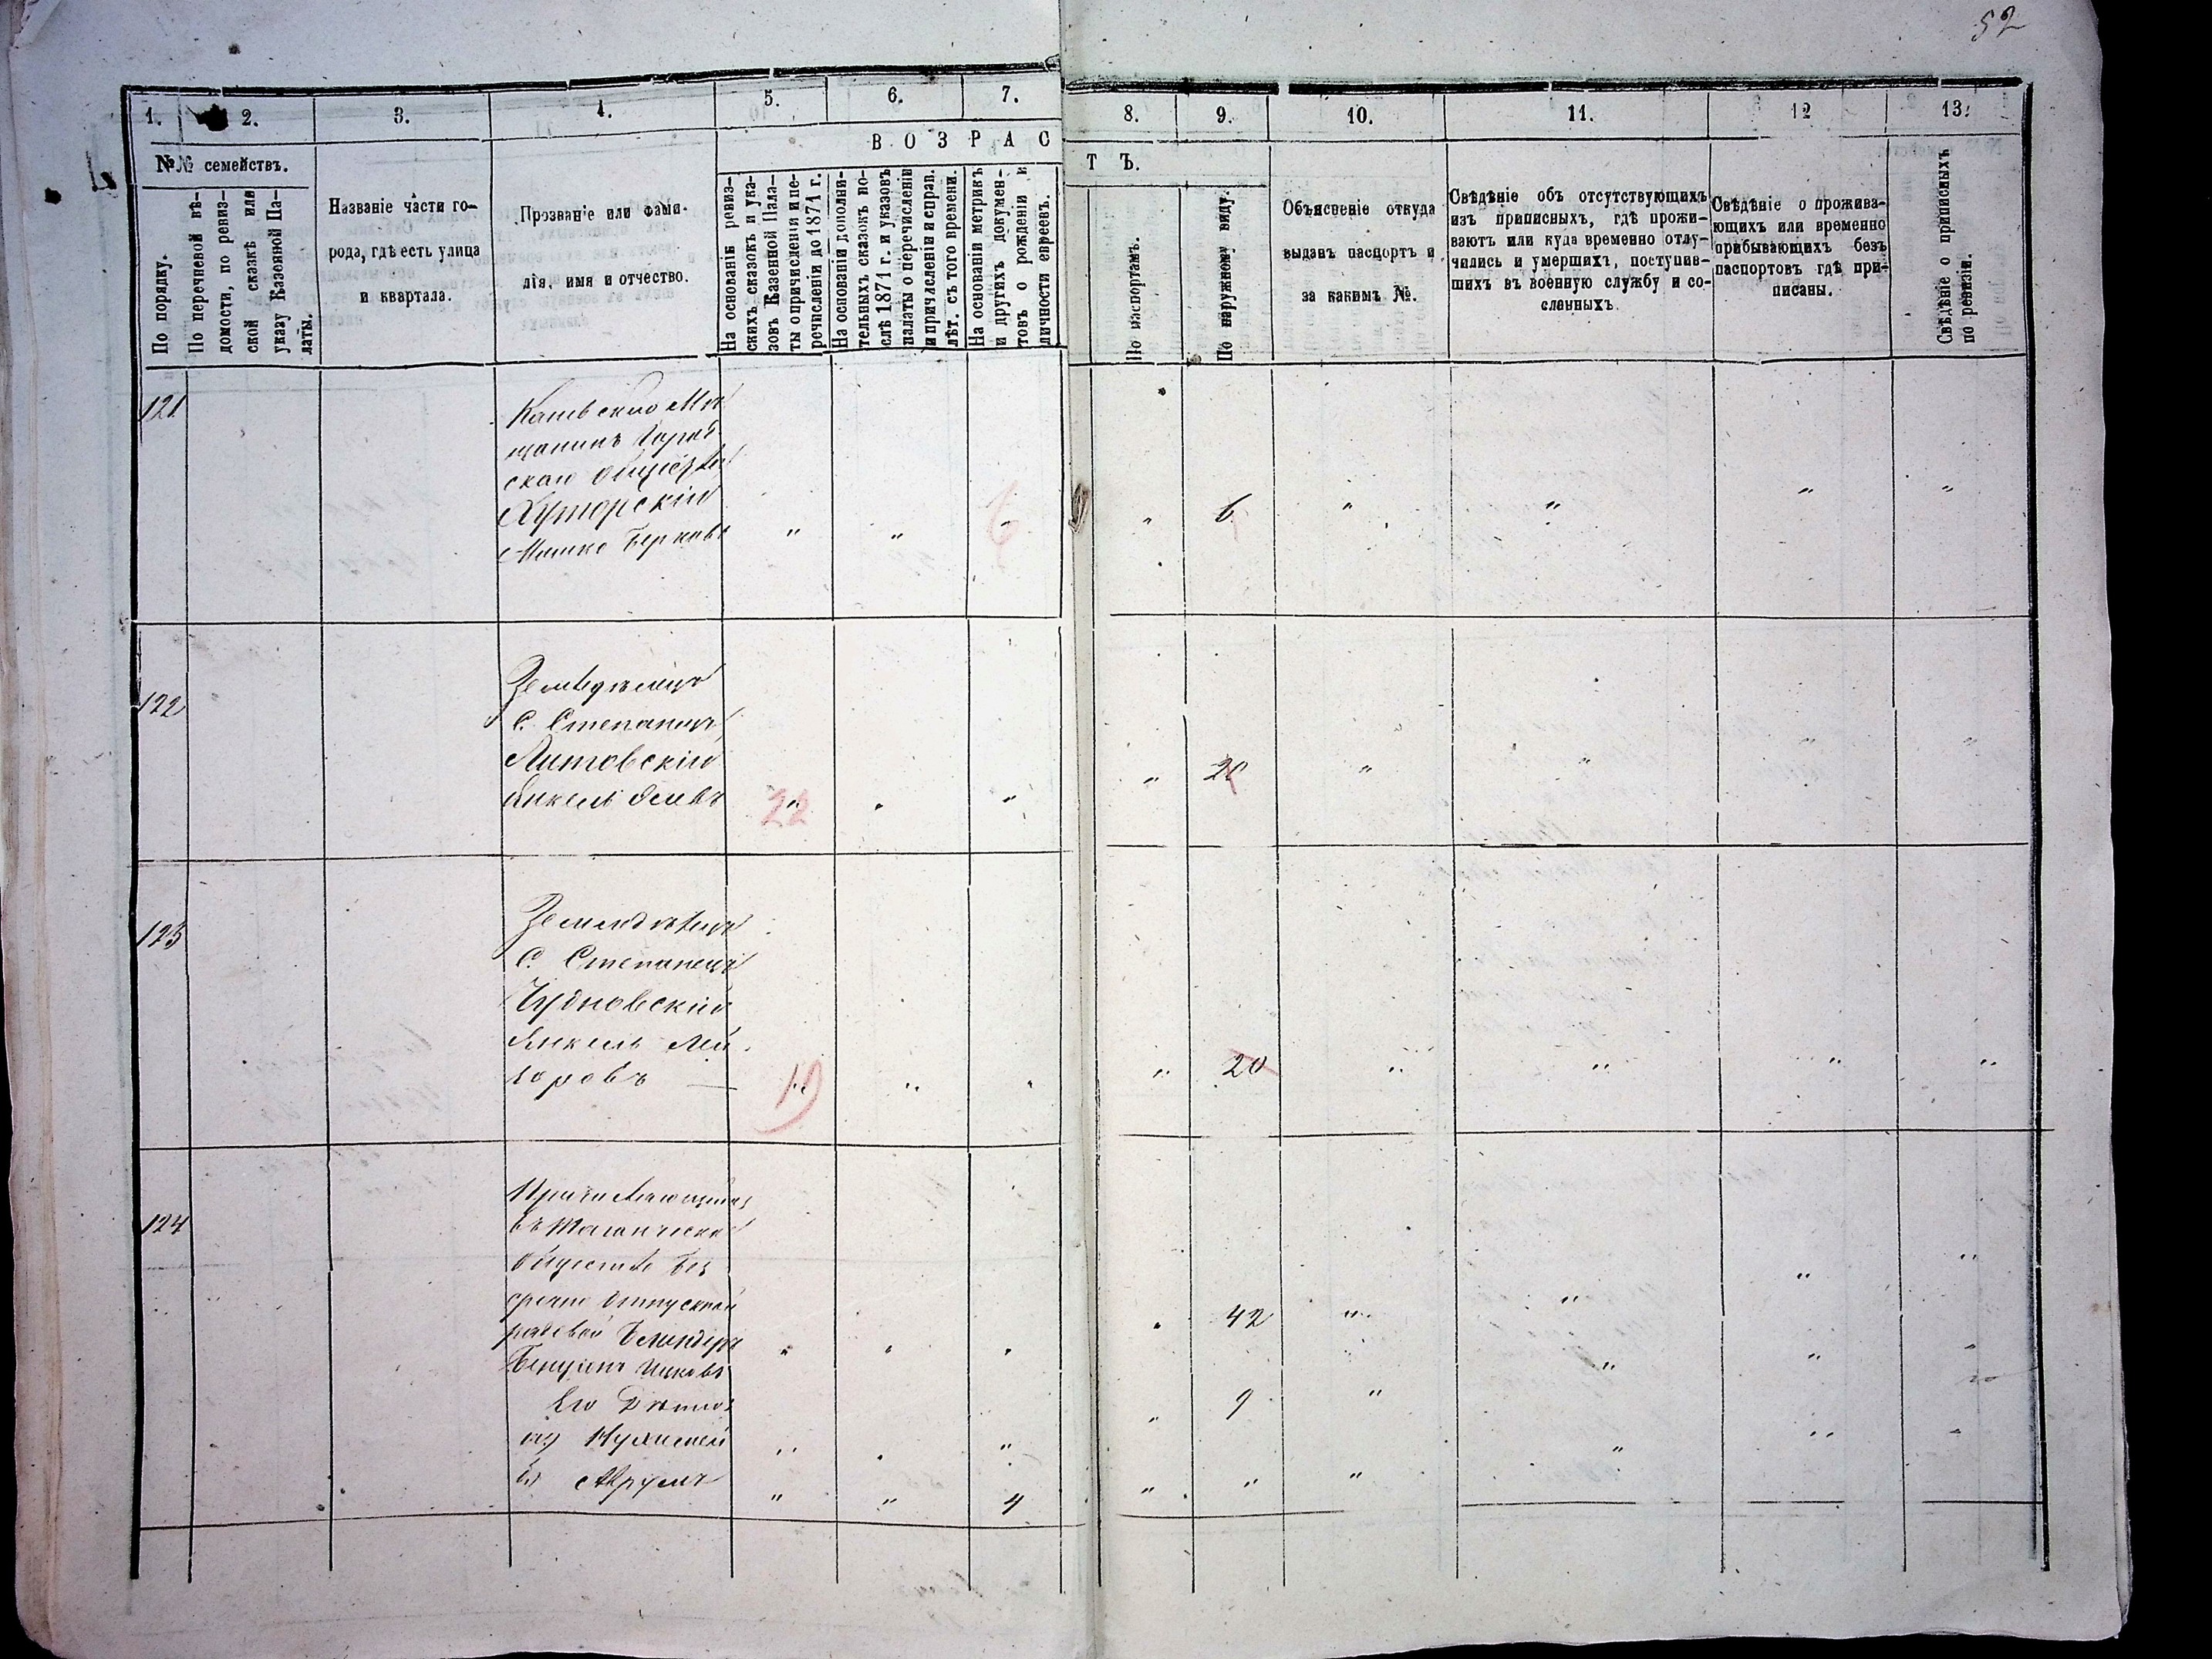 52
1. 2. 3. 4. 5. 6. 7. 8. 9. 10. 11. 12 13.
№№ семействъ.
В О З Р А С Т Ъ.
По порядку.
По перечневой вѣ-
домости, по ревиз-
ской сказкѣ или
указу Казенной Па-
латы.
Названіе части го-
рода, гдѣ есть улица
и квартала.
Прозваніе или фами-
лія, имя и отчество.
На основаніи ревиз-
скихъ сказокъ и ука-
зовъ Казенной Пала-
ты о причисленіи и пе-
речисленіи до 1871 г.
На основаніи дополни-
тельныхъ сказокъ по-
слѣ 1871 г. и указовъ
палаты о перечисленіи
и причисленіи и справ.
лѣт. съ того времени.
На основаніи метрикъ
и другихъ докумен-
товъ о рожденіи и
личности евреевъ.
По паспортамъ.
По наружному виду.
Объясненіе откуда
выданъ паспортъ и
за какимъ №.
Свѣдѣніе объ отсутствующихъ
изъ приписныхъ, гдѣ прожи-
ваютъ или куда временно отлу-
чились и умершихъ, поступив-
шихъ въ военную службу и со-
сланныхъ.
Свѣдѣніе о прожива-
ющихъ или временно
прибывающихъ безъ
паспортовъ гдѣ при-
писаны.
Свѣдѣніе о приписныхъ
по ревизіи.
121
скаго
Хуторскій
Мошко Берковъ " " 6 " 6 " " " "
122
Земледѣлецъ
С. Степанецъ
Литовскій
Янкель 22 " " " 20 " " " "
123
Земледѣлецъ
С. Степанецъ
Чудновскій
Янкель Лей
зоровъ 19 " " " 20 " " " "
124
Причисляющійся
въ
обществѣ Без
срочно отпускной
рядовой
Ицковъ " " " " 42 " " " "
Его
а) " " " " 9 " " " "
б) Аврумъ " " 4 " " " " " "